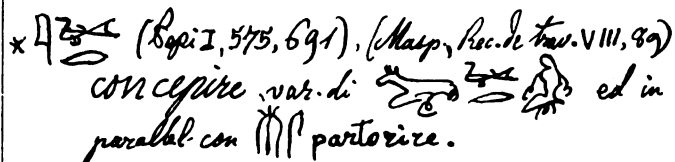 * (Pepi I, 575, 691), (Masp, Rec. de trav. VIII, 89)
concepire, var. di ed in
parallel. con 𓄟𓋴 partorire.